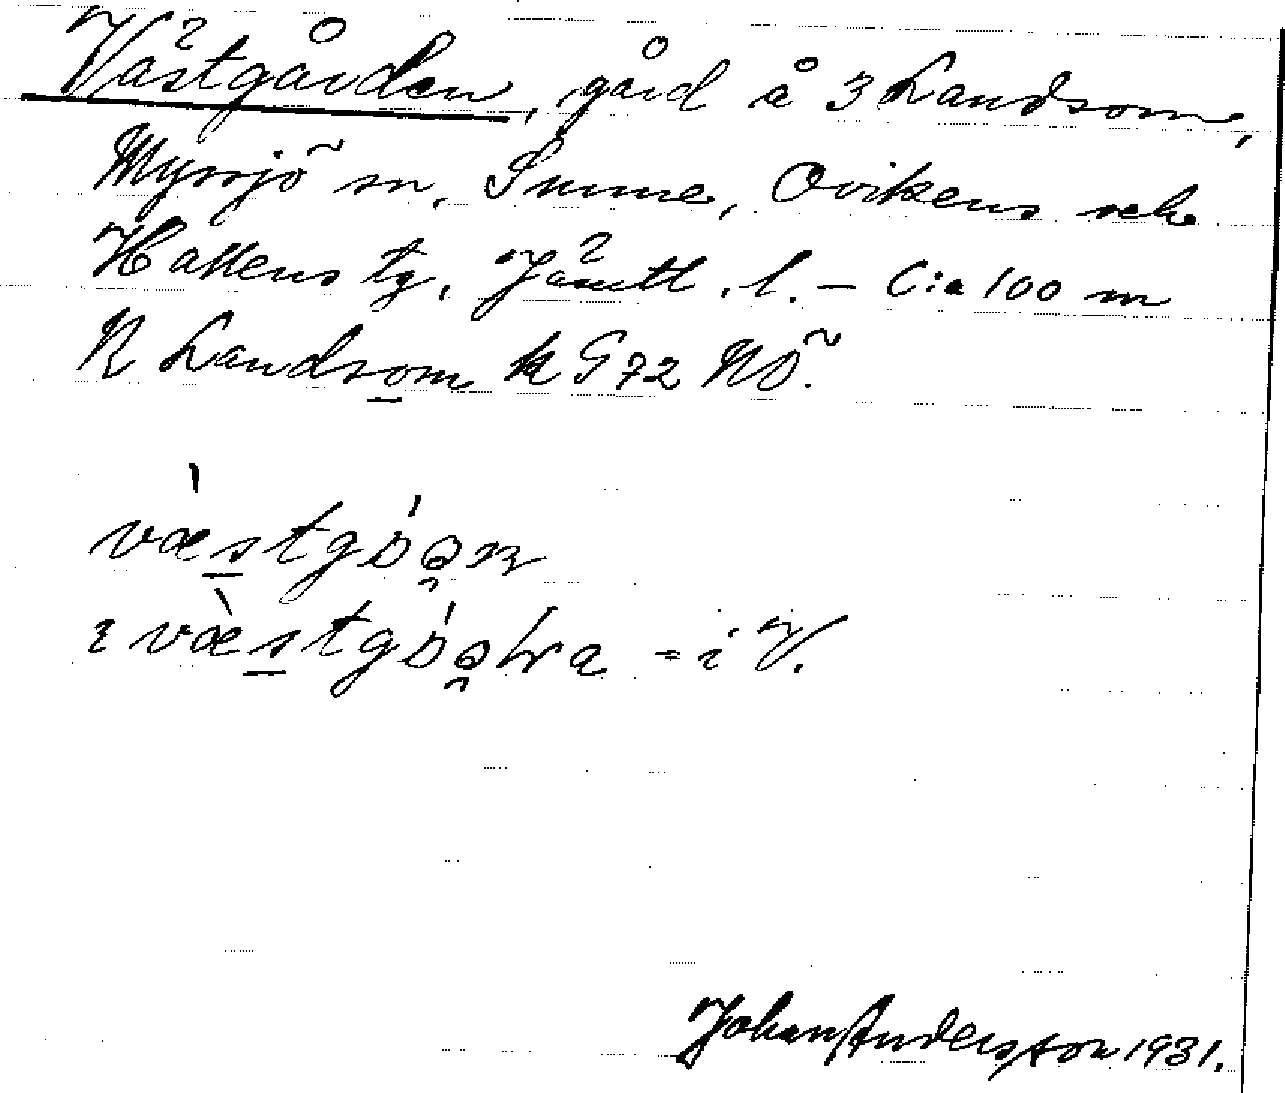 Västgården, gård å 3 Landsom,
Myssjö sn, Sunne, Ovikens och
Hallens tg, Jämtl. l. – C:a 100 m
N Landsom k G72 NÖ.
væstgɒ́ən
ɪ væstgɒ́əɫʀa = i V.
Johan Andersson 1931.